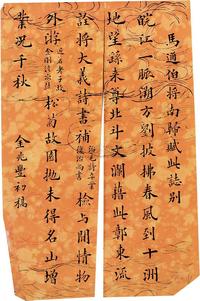 馬適伯將南歸賦此誌別
皖江一脈溯方劉披拂春風到十洲
地望錄來尊北斗文瀾藉此鄣東流
詮將大義詩書補
檢與閒情物
外游
松菊故園拋未得名山增
業況千秋
金兆豐初稿